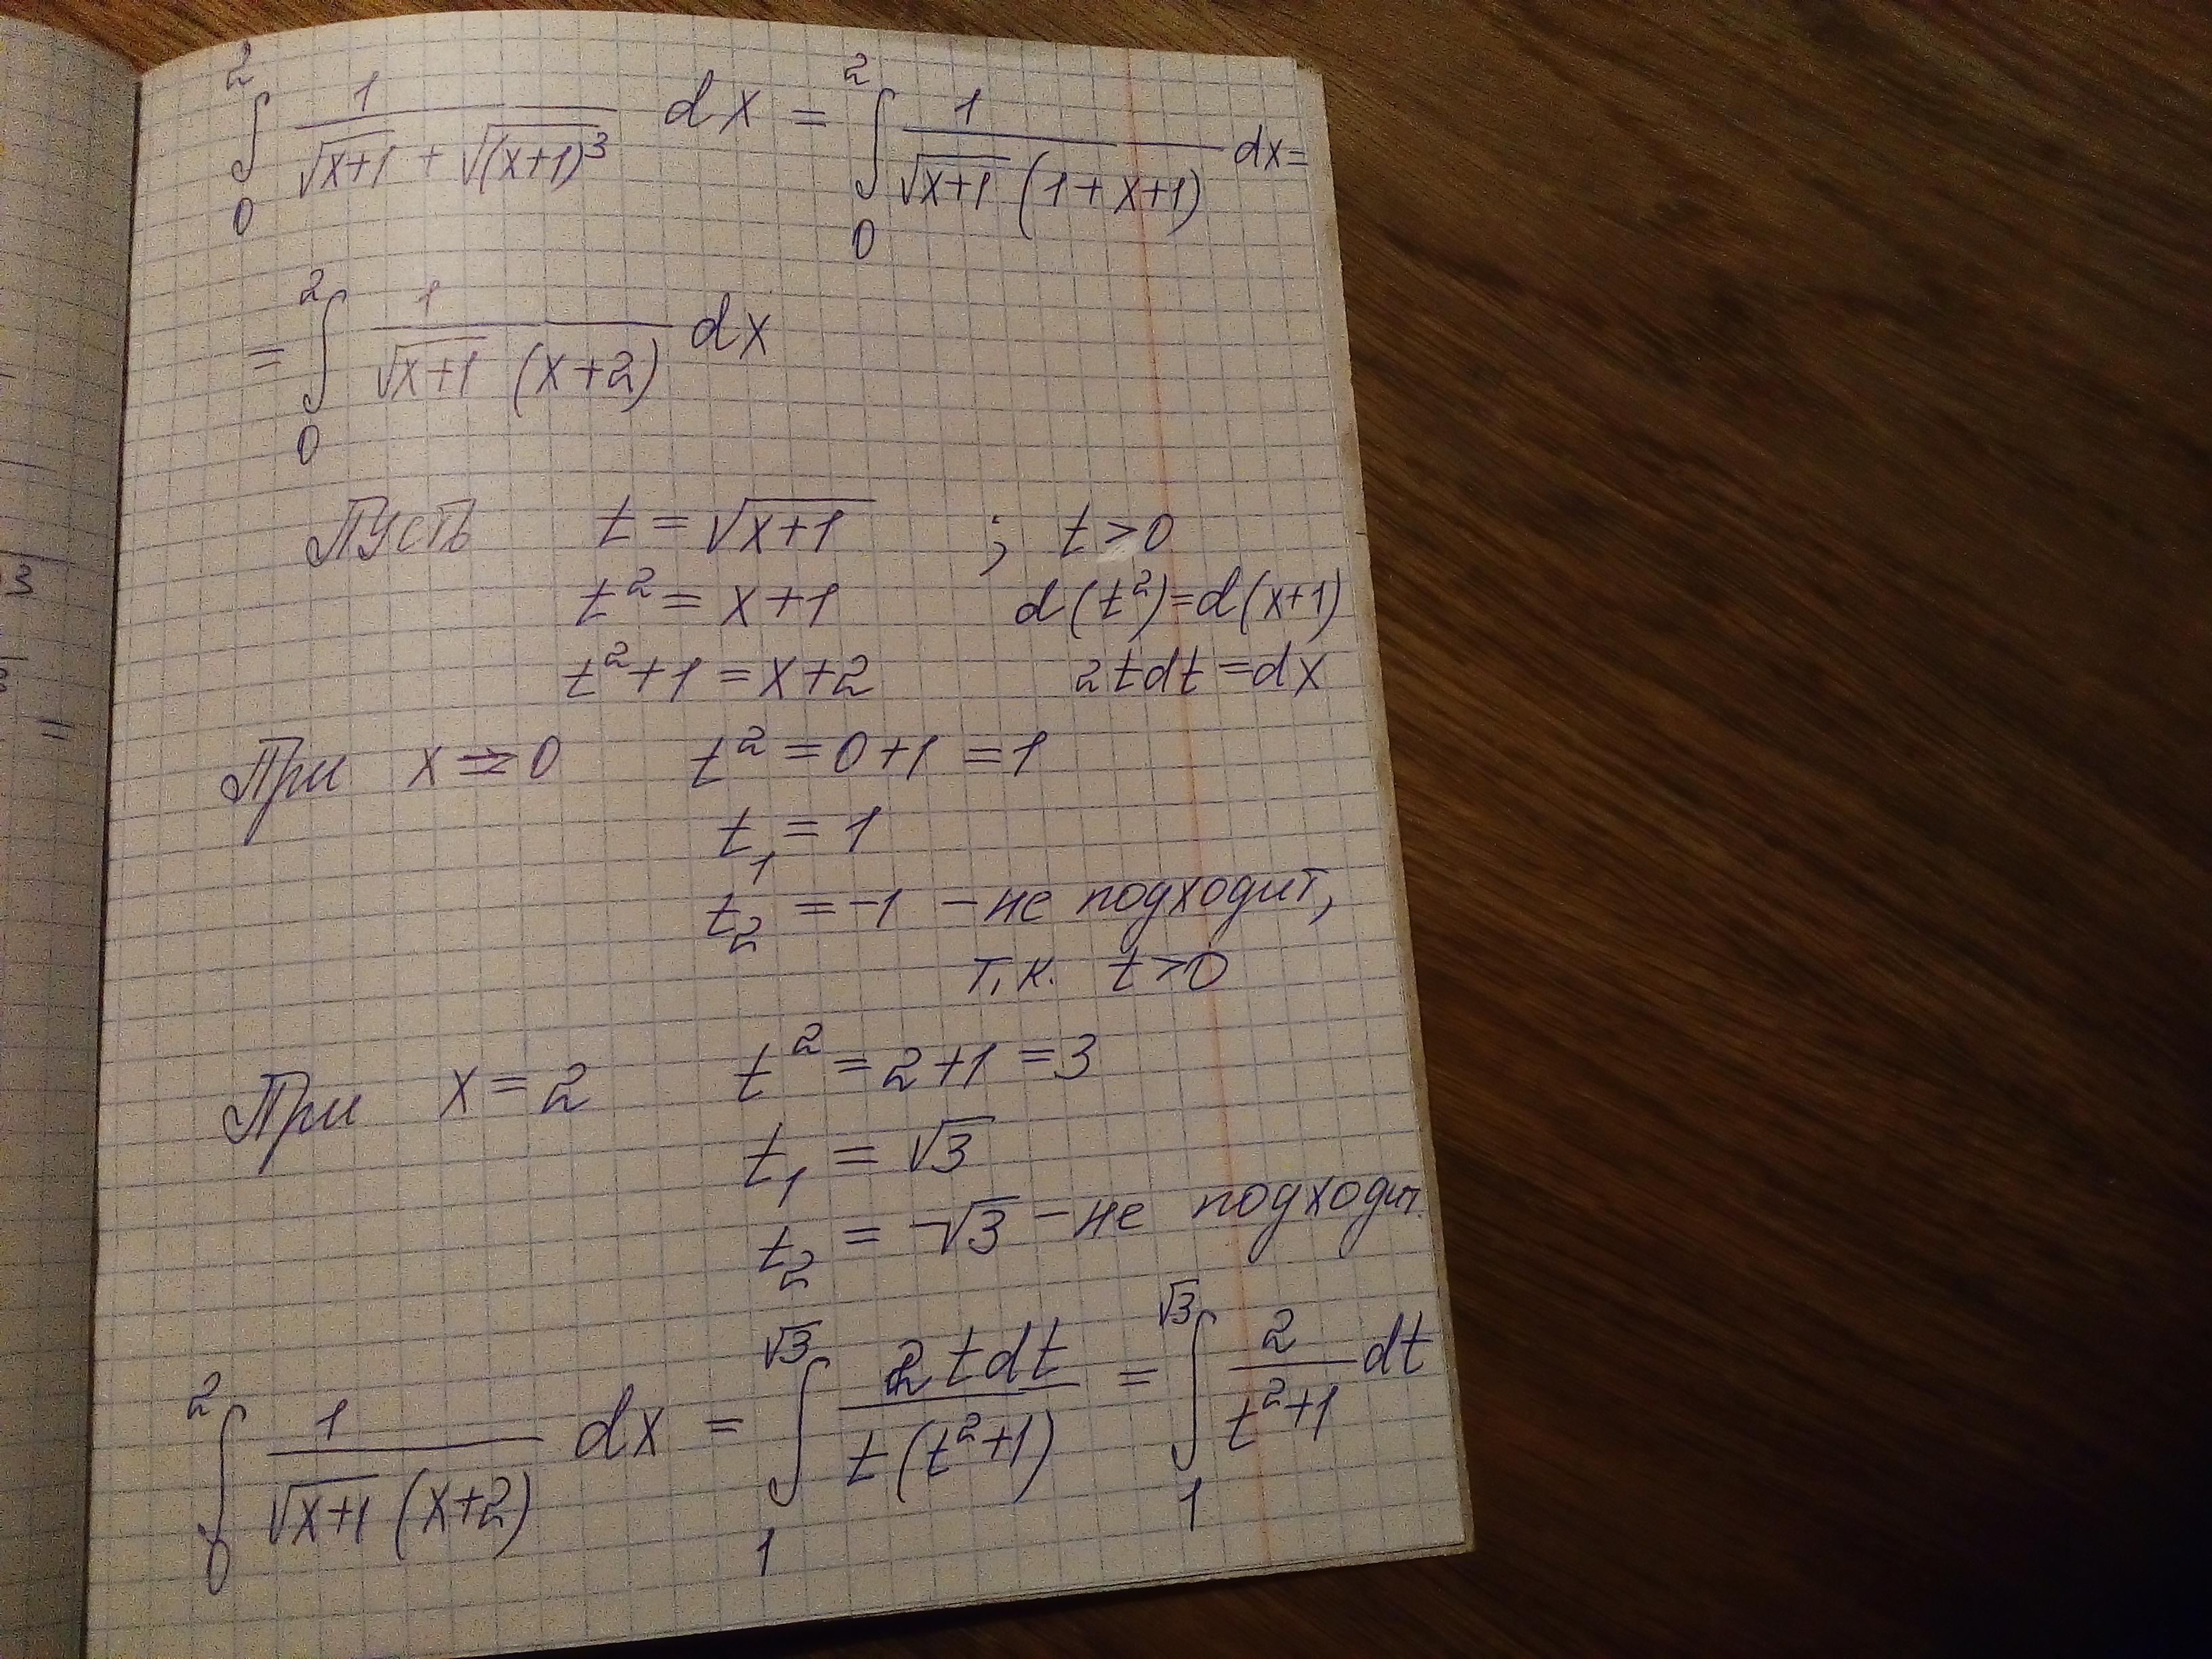 ∫₀² 1/(√(x+1) + √((x+1)³)) dx = ∫₀² 1/(√(x+1) (1+x+1)) dx =
= ∫₀² 1/(√(x+1) (x+2)) dx
Пусть t = √(x+1) ; t > 0
t² = x+1 d(t²) = d(x+1)
t²+1 = x+2 2tdt = dx
При x = 0 t² = 0+1 = 1
t₁ = 1
t₂ = -1 - не подходит,
т.к. t > 0
При x = 2 t² = 2+1 = 3
t₁ = √3
t₂ = -√3 - не подходит.
∫₀² 1/(√(x+1) (x+2)) dx = ∫₁^√3 2tdt/(t(t²+1)) = ∫₁^√3 2/(t²+1) dt
3
=